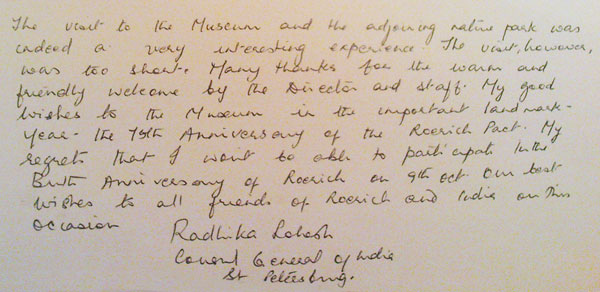 The visit to the Museum and the adjoining nature park was
indeed a very interesting experience. The visit, however,
was too short. Many thanks for the warm and
friendly welcome by the Director and staff. My good
wishes to the Museum in the important landmark-
year - the 75th Anniversary of the Roerich Pact. My
regrets that I wont be able to participate in the
Birth Anniversary of Roerich on 9th Oct. Our best
wishes to all friends of Roerich and India on this
occasion
Radhika Lokesh
Consul General of India
St Petersburg.